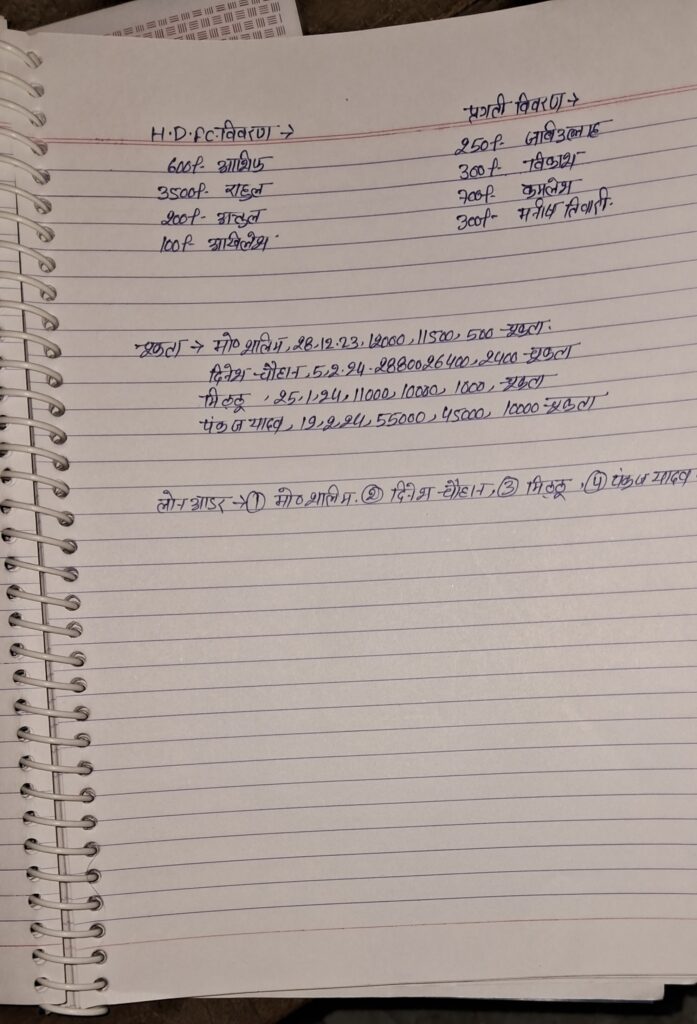 H.D.FC.विवरण →
600/- आशिफ
3500/- राहुल
200/- अतुल
100/- अखिलेश
प्रगती विवरण →
250/- जाविउल्लाह
300/- विकाश
700/- कमलेश
300/- मनीष तिवारी.
चुकता → मो० शालिम, 28.12.23, 12000, 11500, 500 - चुकता.
दिनेश चौहान, 5.2.24. 28800 26400, 2400 - चुकता
मिठ्ठू, 25.1.24, 11000, 10000, 1000, - चुकता
पंकज यादव, 12.2.24, 55000, 45000, 10000 - चुकता
लोन आडर → ① मो० शालिम. ② दिनेश चौहान, ③ मिठ्ठू, ④ पंकज यादव.